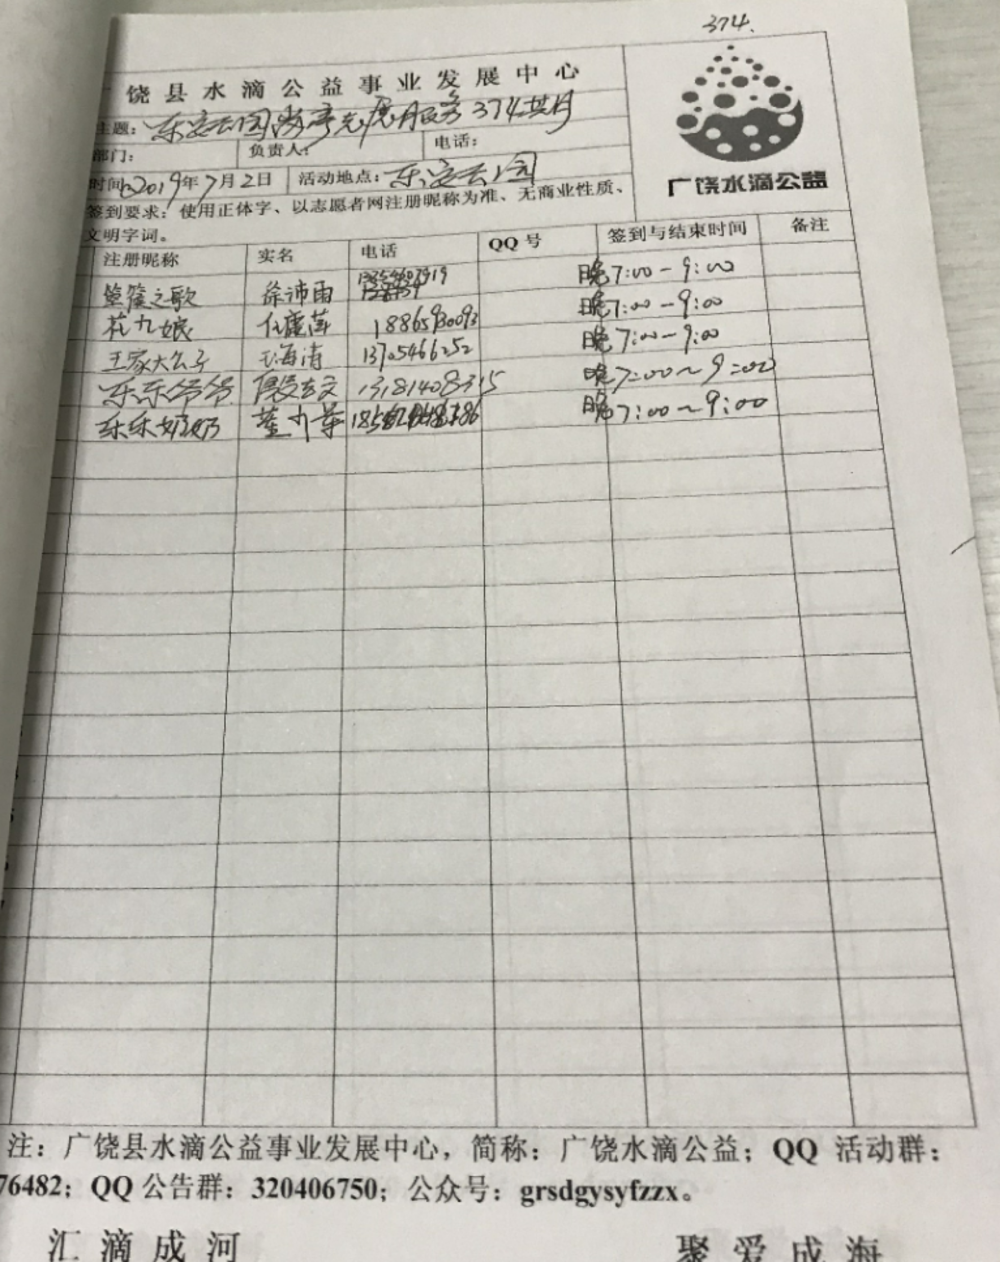 374.
广饶县水滴公益事业发展中心
主题: 东安公园 志愿服务 374
部门: 负责人: 电话:
时间: 2019年7月2日 活动地点: 东安公园
广饶水滴公益
签到要求：使用正体字、以志愿者网注册昵称为准、无商业性质、
文明字词。
注册昵称 实名 电话 QQ 号 签到与结束时间 备注
箜篌之歌 徐沛雨 晚7:00-9:00
花九娘 18865930093 晚7:00-9:00
王家大公子 王海清 13705466252 晚7:00-9:00
乐乐爷爷 13181408315 晚7:00~9:00
乐乐奶奶 晚7:00~9:00
注：广饶县水滴公益事业发展中心，简称：广饶水滴公益；QQ 活动群：
76482；QQ 公告群：320406750；公众号：grsdgysyfzzx。
汇滴成河 聚爱成海